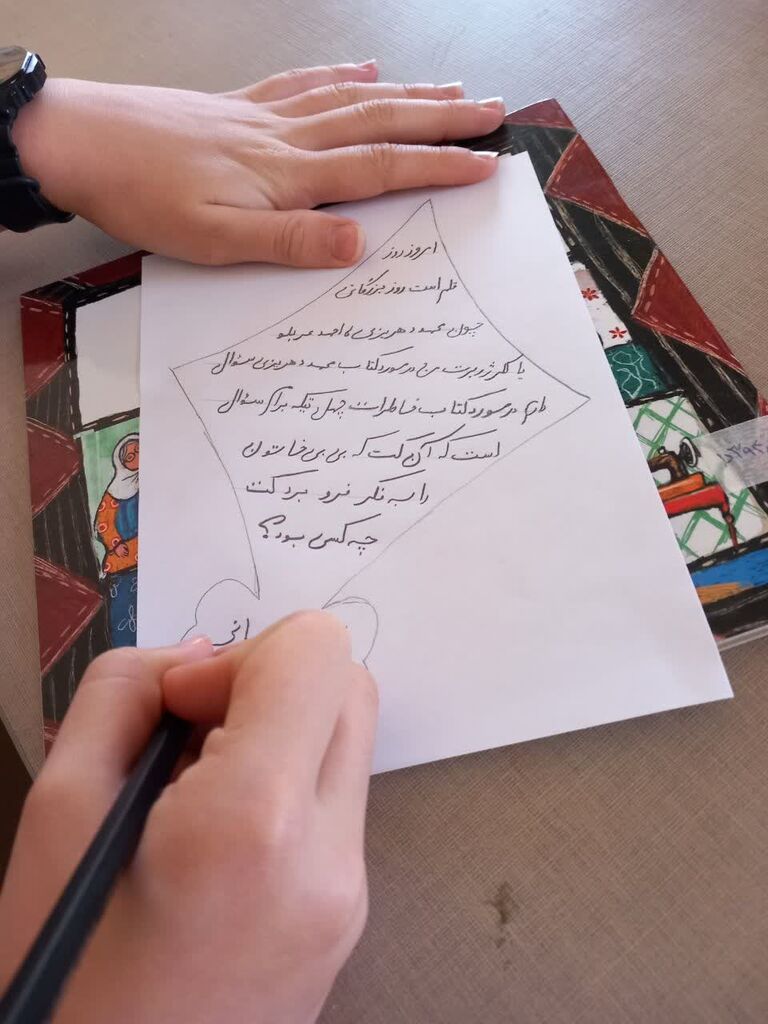 امروز روز
قلم است روز بزرگانی
چون محمد دهریزی، احمد عربلو
یا کلر ژوبرت من در مورد کتاب محمد دهریزی سؤال
دارم در مورد کتاب خاطرات چهل تیکه برای سؤال
است که آن کت که بی بی خاتون
را به فکر فرو برد کت
چه کسی بود؟
انی